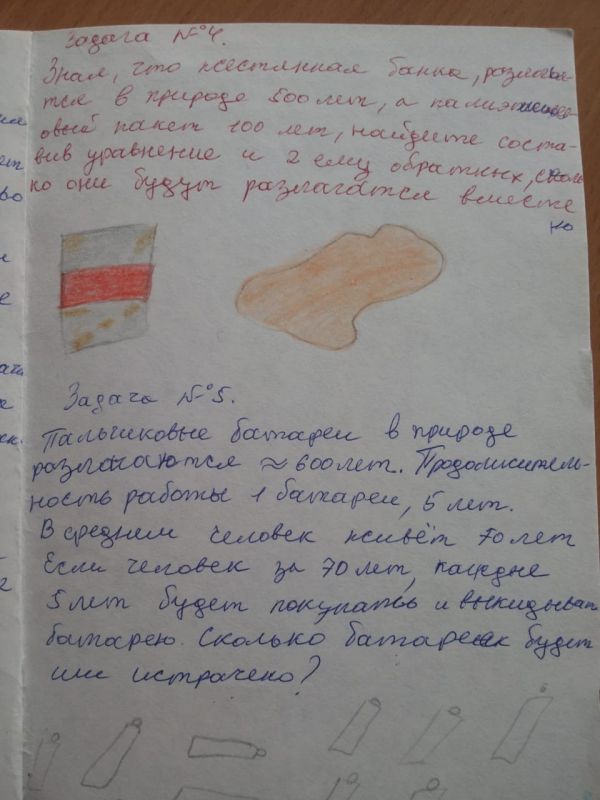 Задача №4.
Зная, что жестянная банка, разлагае-
тся в природе 500 лет, а
овый пакет 100 лет, найдите соста-
вив уравнение и 2 ему обратных, сколь
ко они будут разлагатся вместе
но
Задача №5.
Пальчиковые батареи в природе
разлагаются ≈ 600 лет. Продолжитель-
ность работы 1 батареи, 5 лет.
В среднем человек живёт 70 лет
Если человек за 70 лет, каждые
5 лет будет покупать и выкидыват
батарею. Сколько батареек будет
им истрачено?